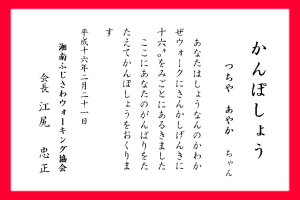 かんぽしょう
つちや あやか ちゃん
あなたはしょうなんのかわか
ぜウォークにさんかしげんきに
十六㌔をみごとにあるきました
ここにあなたのがんばりをた
たえてかんぽしょうをおくりま
す
平成十六年二月二十一日
湘南ふじさわウォーキング協会
会長 江尻 忠正